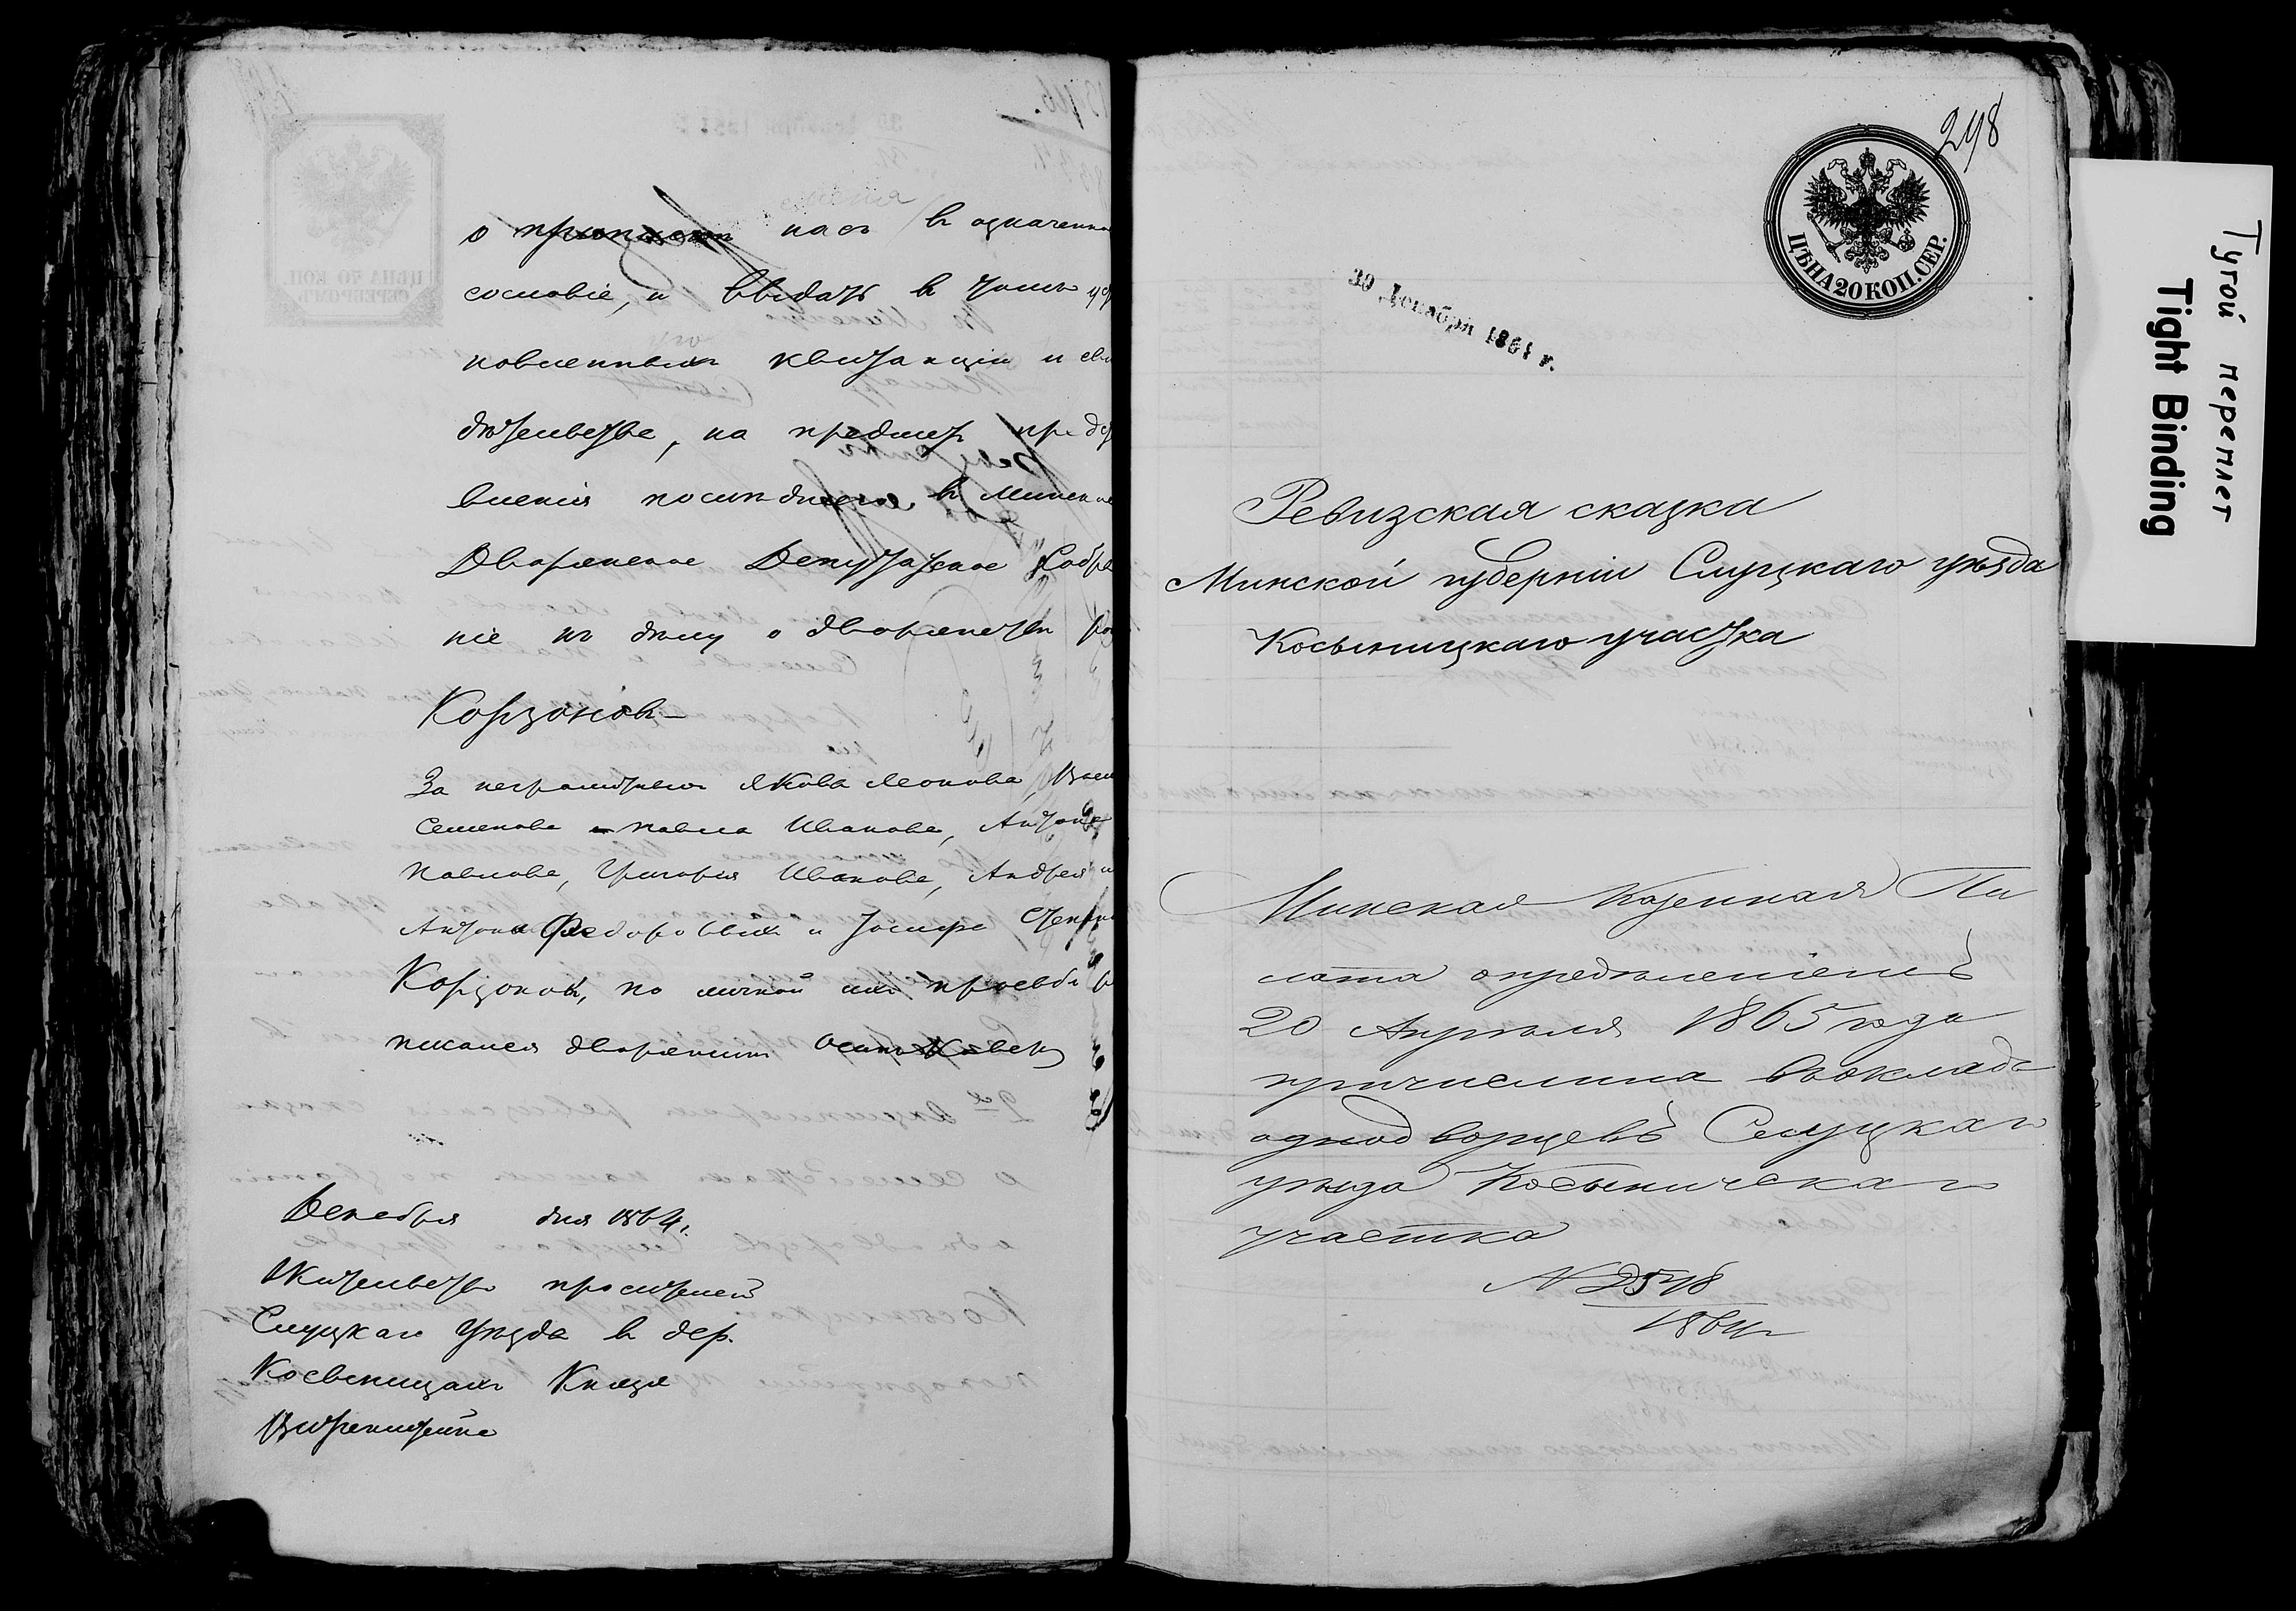 о насъ въ означенно
сословіе, и выдать в томъ
новленныхъ квитанцію и сви
дѣтельство, на предметъ предс
вленія посл въ Минское
Дворянское Депутатское Собра
ніе къ дѣлу о дворянствѣ ро
Корзоновъ
За неграмотныхъ Якова Леонова,
Семенова Павла Иванова, Антона
Павлова, Григорія Иванова, Андрея и
Антона Федоровыхъ и Іосифа
Корзоновъ, по личной ихъ просьбѣ р
писался дворянинъ Осипъ
Декабря дня 1864 г.
Жительство просителей
Слуцкаго Уѣзда в дер.
Косыницахъ Князя
Витгенштейна
298
ЦѢНА 20 КОП. СЕР.
30 Декабря 1864 г.
Ревизская сказка
Минской губерніи Слуцкаго уѣзда
Косыницкаго участка
Минская Казенная Па
лата опредѣленіемъ
20 Апрѣля 1865 года
причислила въ окладъ
однодворцевъ Слуцкаго
уѣзда Косыническаго
участка
N 2548
1864 г
Тугой переплет
Tight Binding